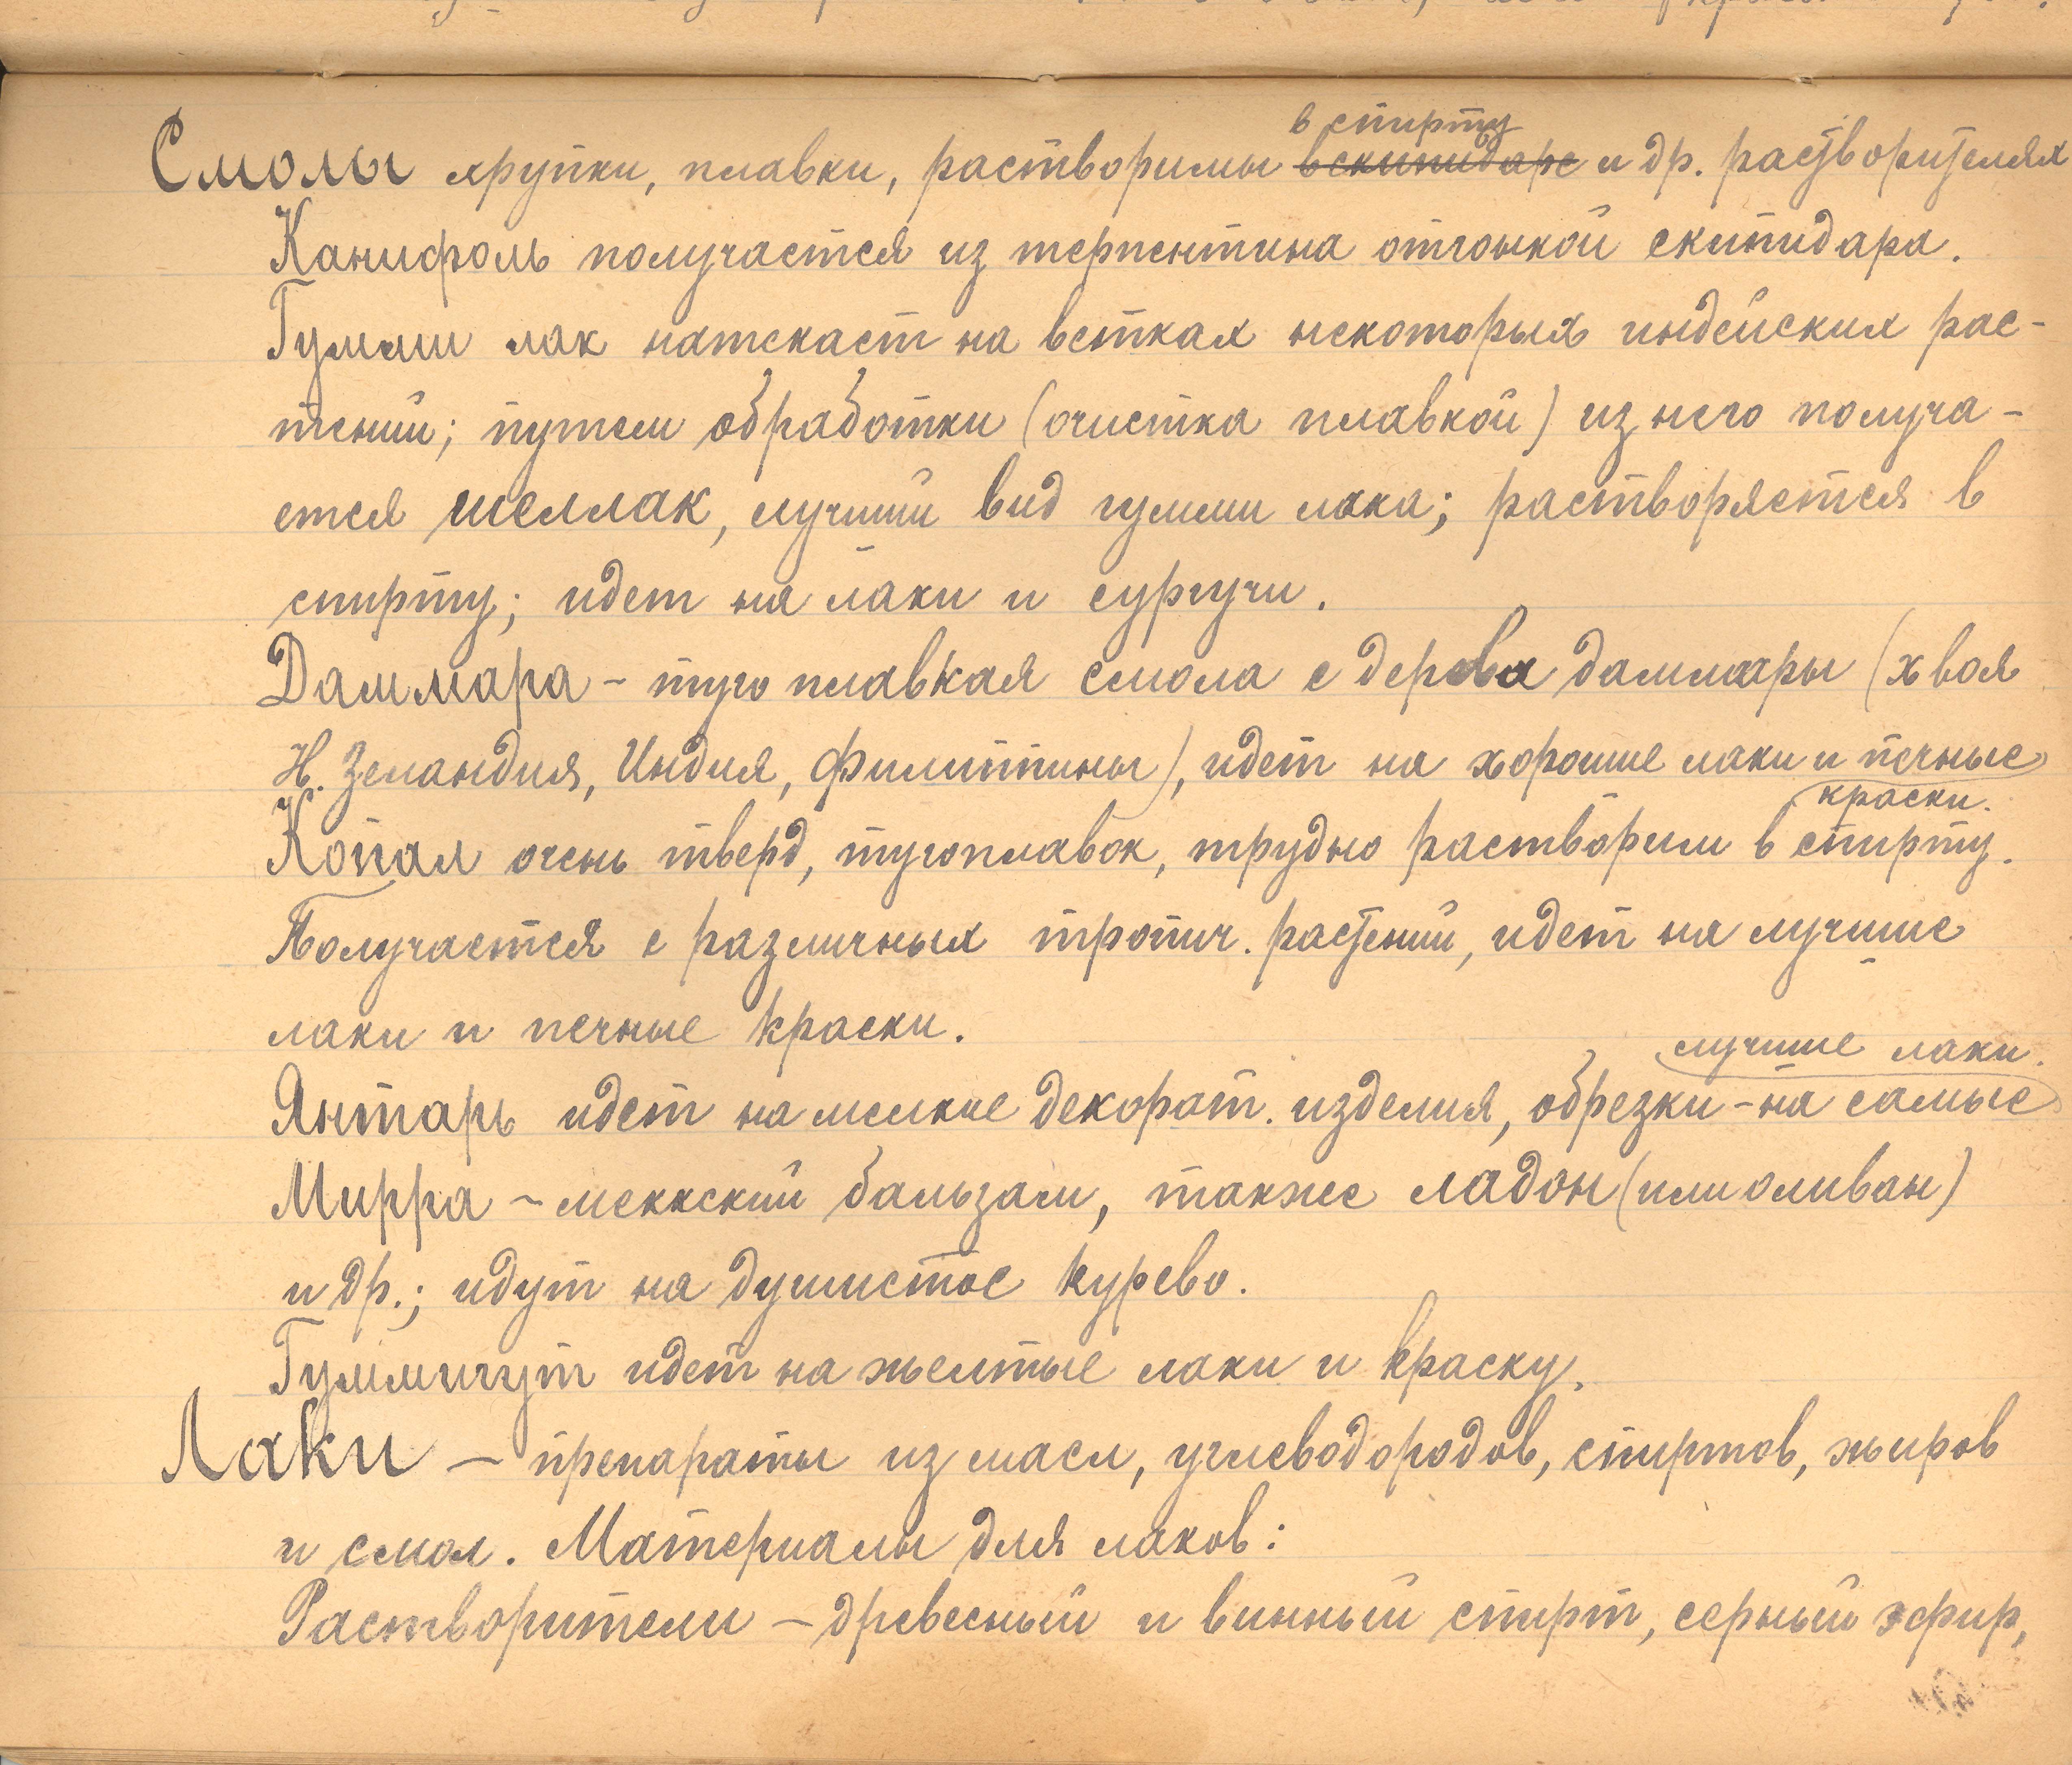 Смолы хрупки, плавки, растворимы в спирту ~~в скипидаре~~ и др. растворителях
Канифоль получается из терпентина отгонкой скипидара.
Гумми лак натекает на ветках некоторых индейских рас-
тений; путем обработки (очистка плавкой) из него получа-
ется шеллак, лучший вид гумми лака; растворяется в
спирту; идет на лаки и сургучи.
Даммара – туго плавкая смола с дерева даммары (хвоя
Н. Зеландия, Индия, Филиппины), идет на хорошие лаки и печные
краски.
Копал очень тверд, тугоплавок, трудно растворим в спирту.
Получается с различных тропич. растений, идет на лучшие
лаки и печные краски.
Янтарь идет на мелкие декорат. изделия, обрезки – на самые
лучшие лаки.
Мирра – меккский бальзам, также ладон (или оливан)
и др.; идут на душистое курево.
Гуммигут идет на желтые лаки и краску.
Лаки – препараты из масл, углеводородов, спиртов, жиров
и смол. Материалы для лаков:
Растворители – древесный и винный спирт, серный эфир,